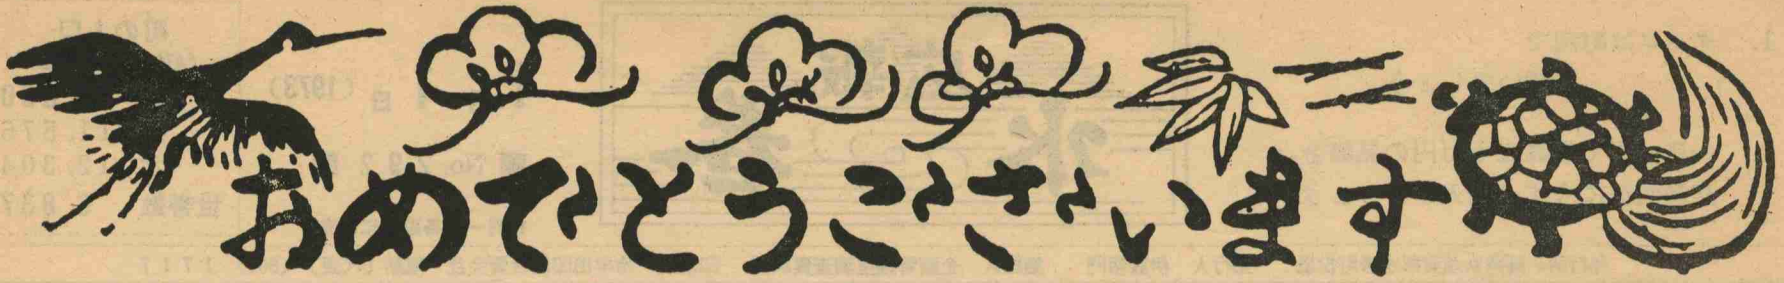 おめでとうございます